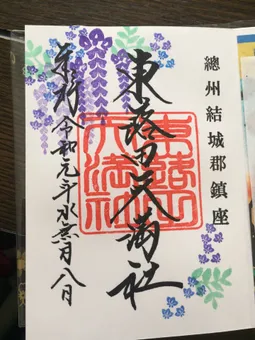 總州結城郡鎮座
東蕗田天満社
来拝 令和元年水無月八日
東蕗田
天満社